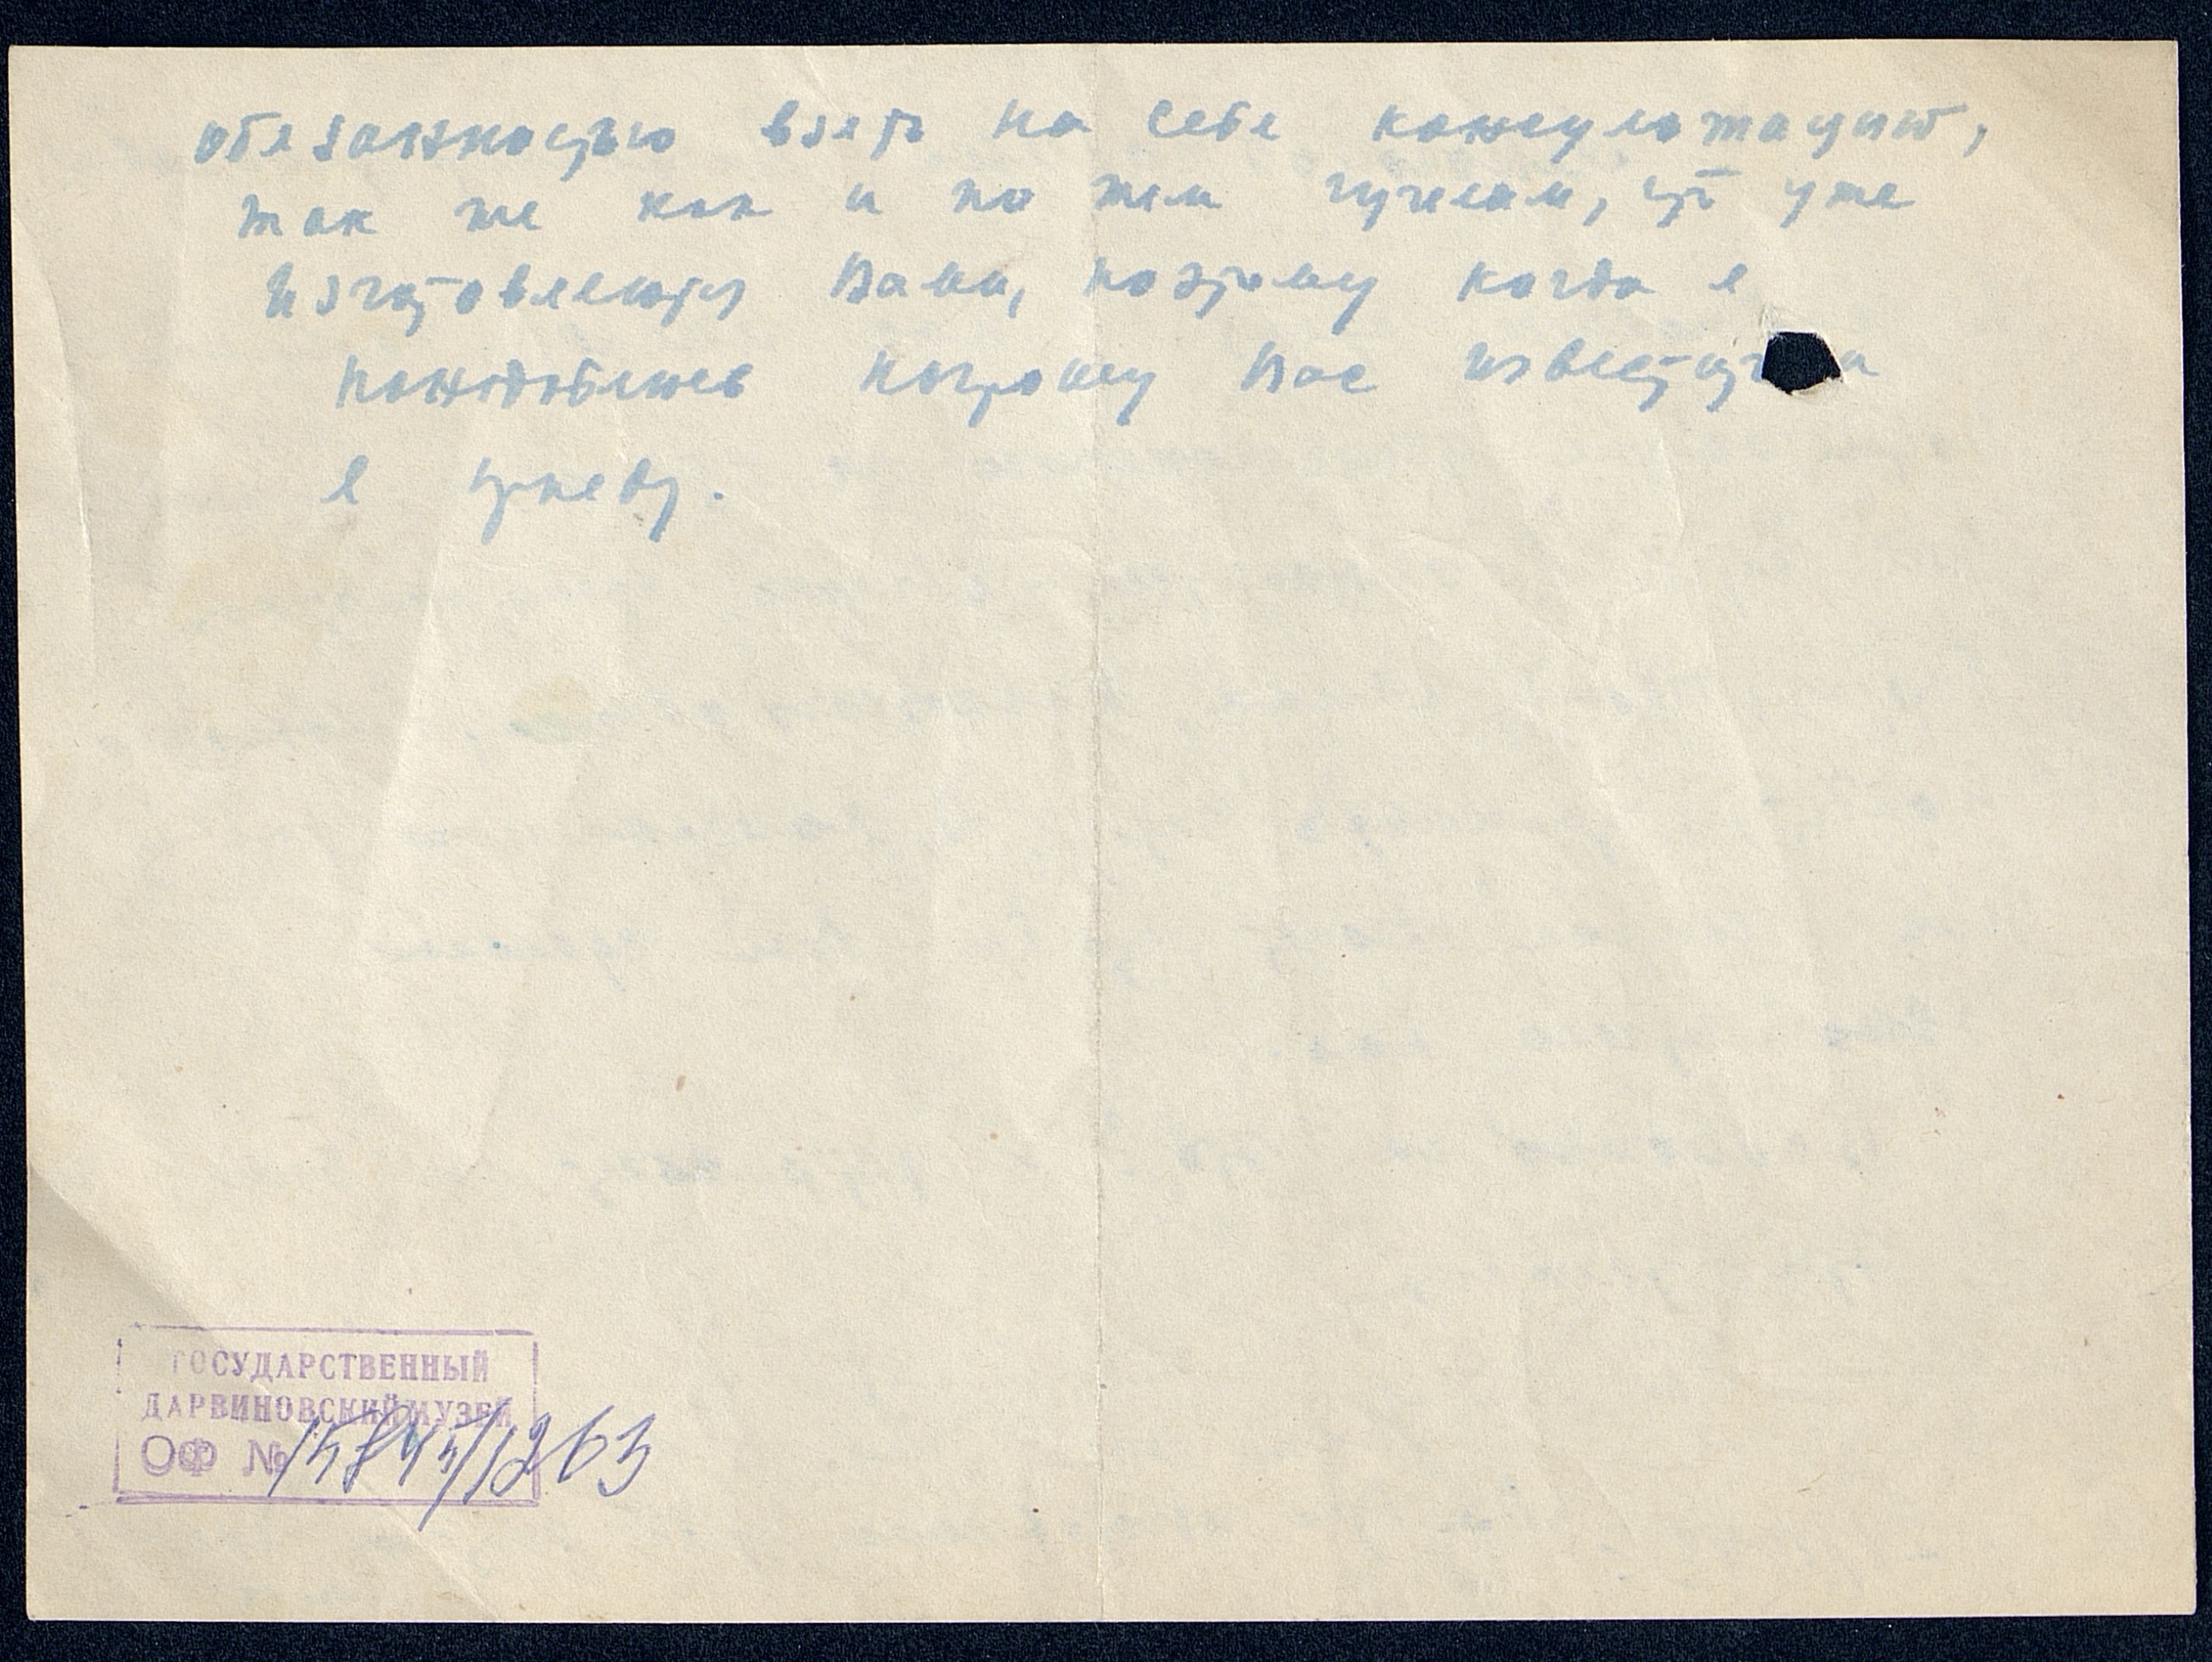 обязанностью взять на себя консультацию,
так же как и по тем чучелам, что уже
изготовляются Вами, поэтому когда я
понадоблюсь попрошу Вас известить и
я приеду.
ГОСУДАРСТВЕННЫЙ
ДАРВИНОВСКИЙ МУЗЕЙ
ОФ № 15845/1263